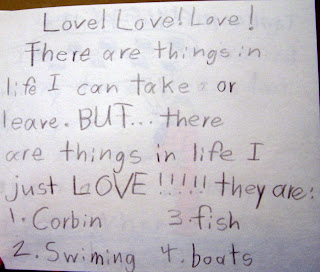 Love! Love! Love!
There are things in
life I can take or
leave. BUT... there
are things in life I
just LOVE !!!!!! they are:
1. Corbin 3. fish
2. Swiming 4. boats